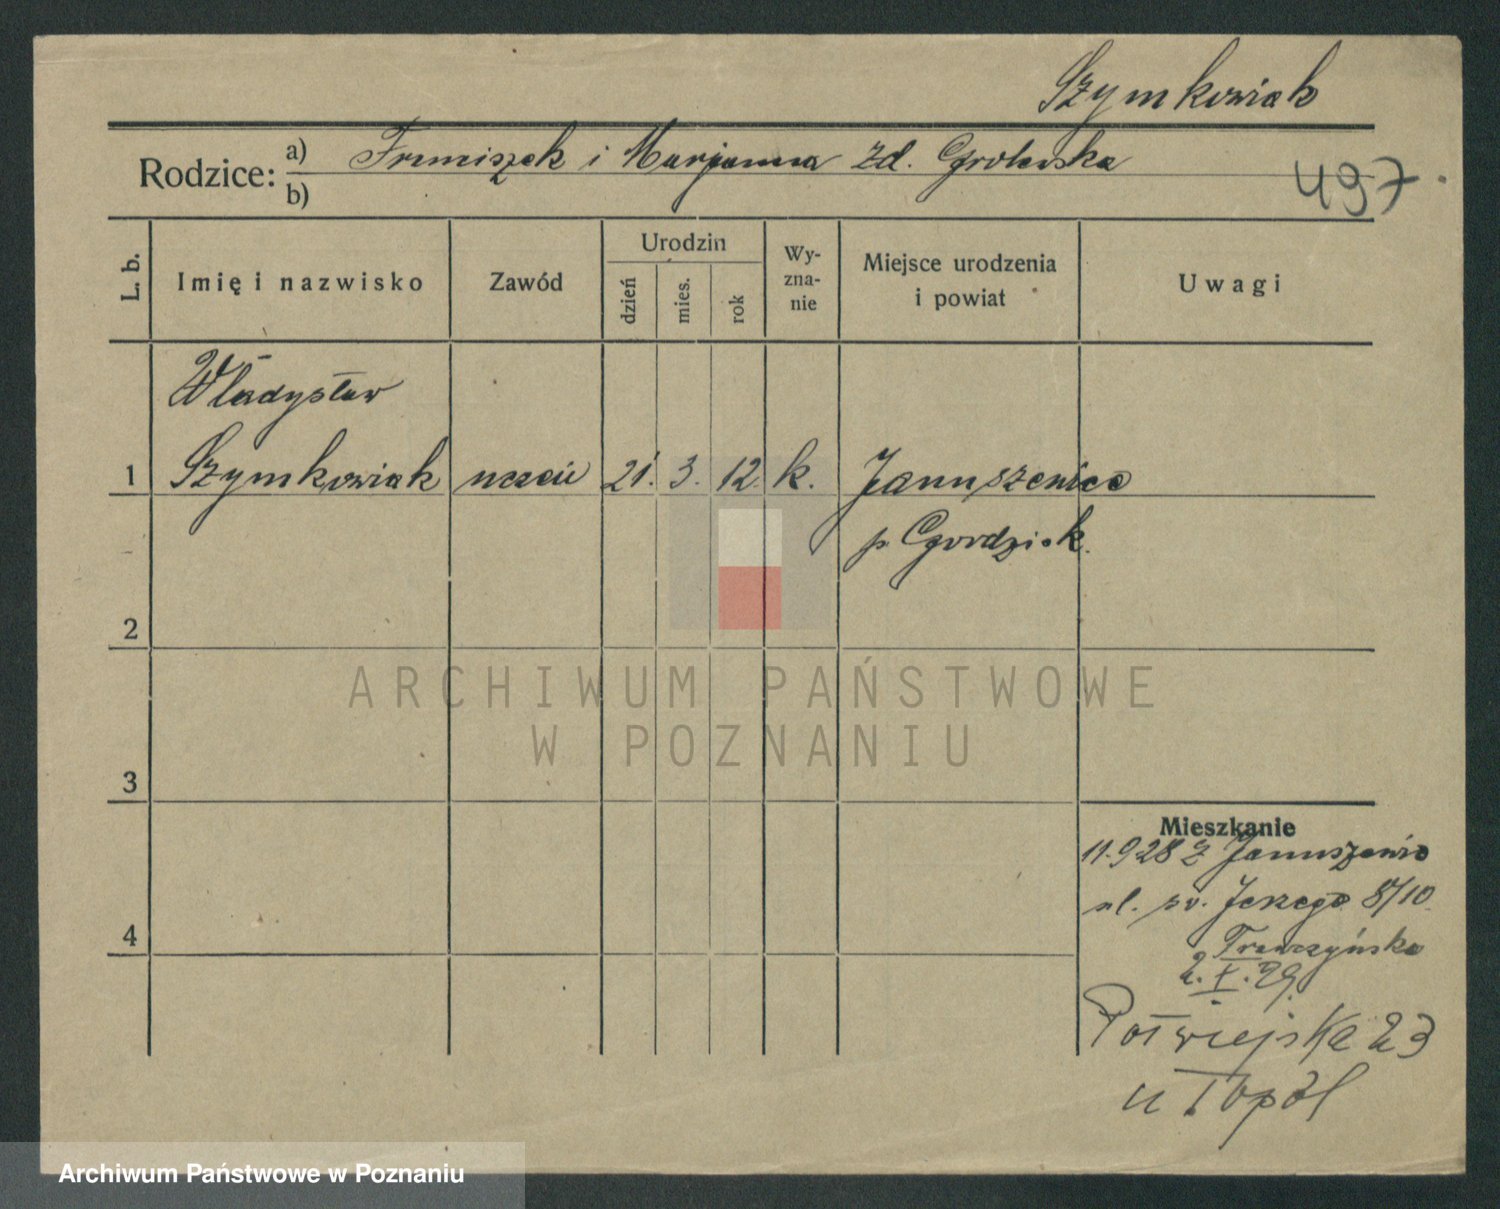 Szymkowiak
Rodzice: a) Franciszek i Marjanna zd. Grolewska
b)
497.
L. b.
Imię i nazwisko
Zawód
Urodzin
dzień
mies.
rok
Wy-
zna-
nie
Miejsce urodzenia
i powiat
Uwagi
Władysław
1 Szymkowiak uczeń 21. 3. 12. k. Januszewice
p. Grodzisk.
2
3
4
ARCHIWUM PAŃSTWOWE
W POZNANIU
Mieszkanie
11.9.28 z Januszewic
ul. św. Jerzego 8/10
Franczyńska
2.X.29.
Półwiejska 23
u Topól
Archiwum Państwowe w Poznaniu